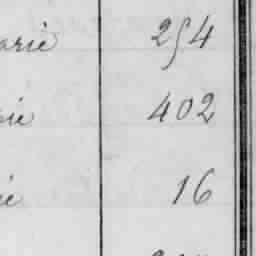 arie 254
rie 402
ie 16